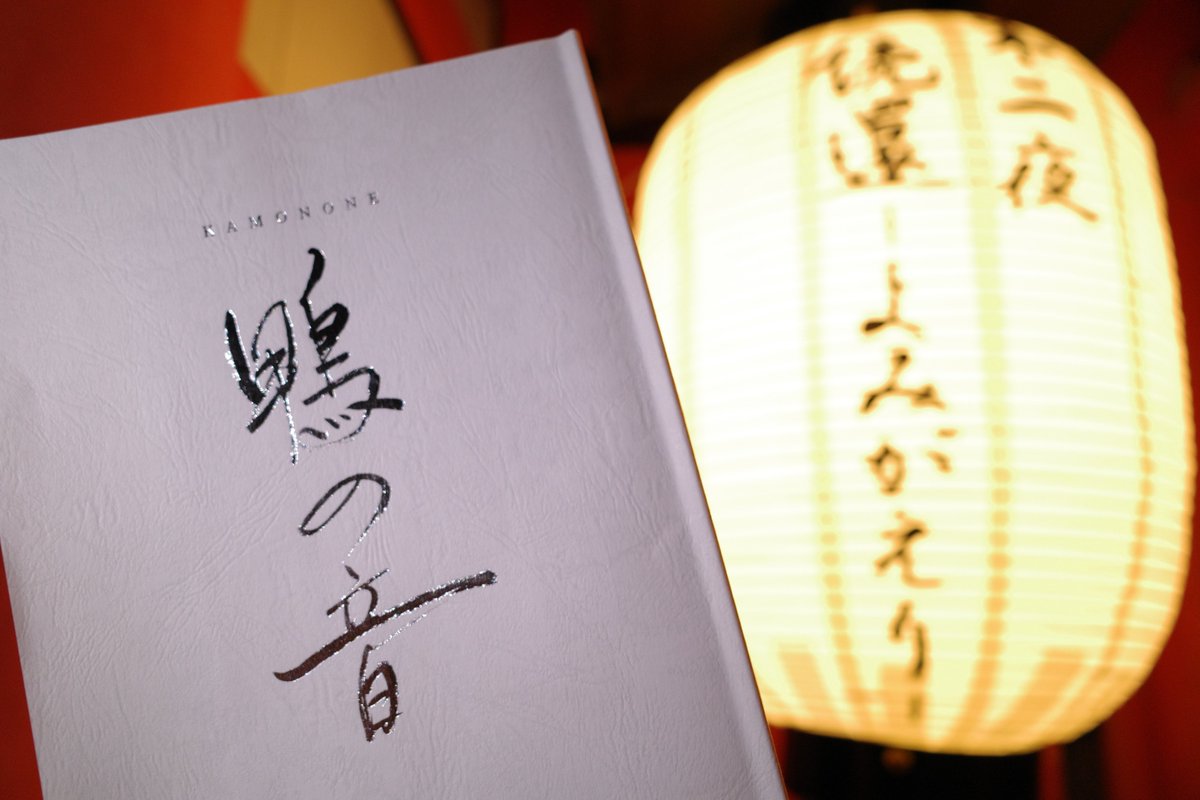 KAMONONE
鴨の音
二夜
還 ―よみがえり―